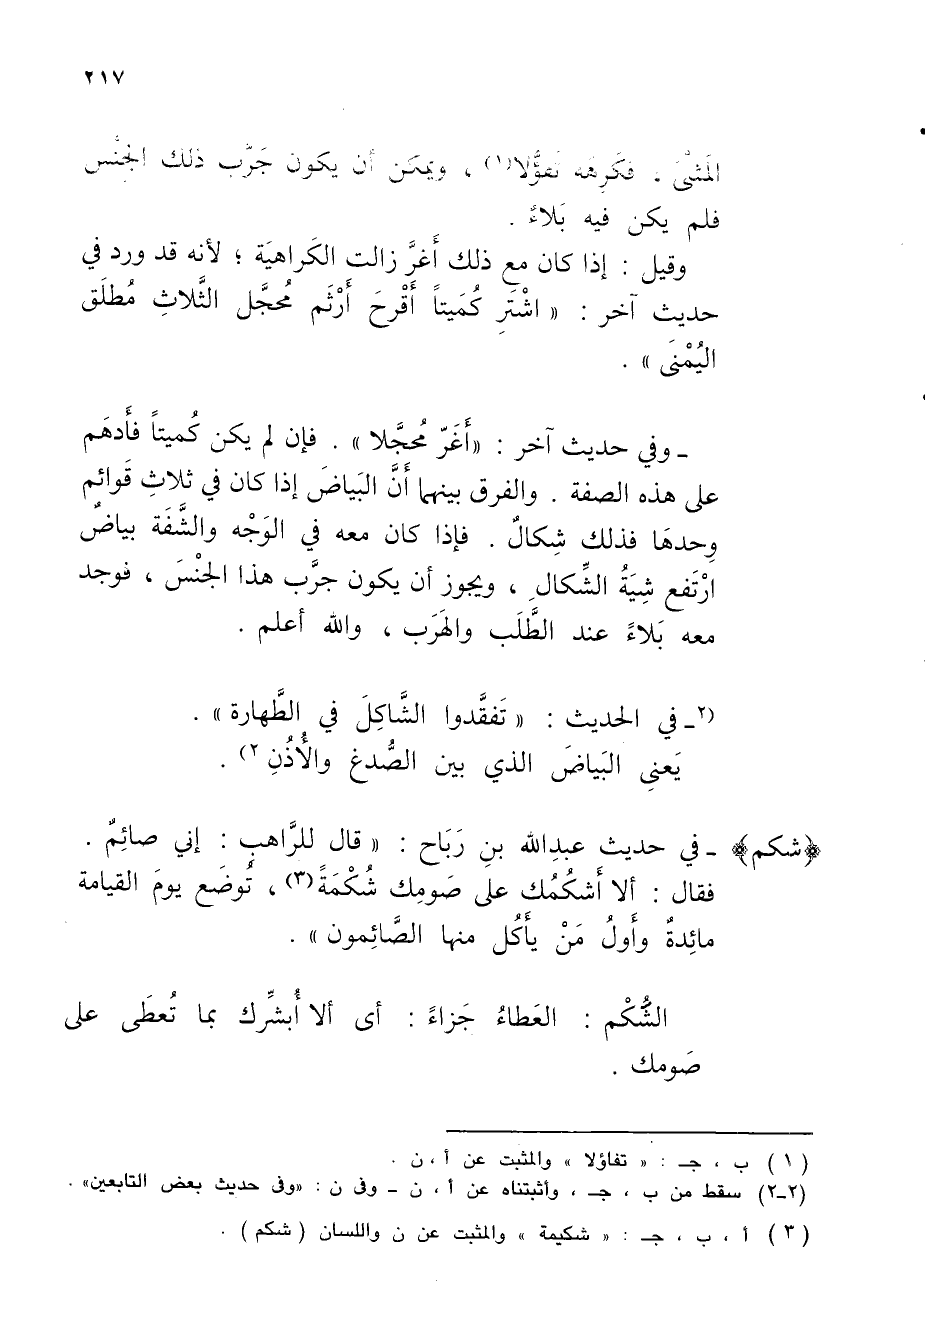 ٢١٧
المَشْيَ ، فكَرِهَه تَفَؤُّلا(١) ، ويمكن أن يكون جَرَّب ذلك الجِنْس
فلم يكن فيه بَلاءٌ .
وقيل : إذا كان مع ذلك أَغرَّ زالت الكَراهيَة ؛ لأنه قد ورد في
حديث آخر : « اشْتَرِ كُمَيتاً أَقْرحَ أَرْثَم مُحجَّل الثَّلاثِ مُطلَق
اليُمْنَى » .
ـ وفي حديث آخر : «أَغَرّ مُحجَّلا» . فإن لم يكن كُميتاً فأَدهَم
على هذه الصفة . والفرق بينهما أَنَّ البَياضَ إذا كان في ثلاثِ قَوائم
وِحدهَا فذلك شِكالٌ . فإذا كان معه في الوَجْه والشَّفَة بياضٌ
ارْتَفع شِيَةُ الشِّكالِ ، ويجوز أن يكون جرَّب هذا الجنْسَ ، فوجد
معه بَلاءً عند الطَّلَب والهَرَب ، والله أعلم .
(٢ـ في الحديث : « تَفقَّدوا الشَّاكِلَ في الطَّهارة » .
يَعنِي البَياضَ الذي بين الصُّدغ والأُذُنِ ٢) .
﴿شكم﴾ ـ في حديث عبدالله بنِ رَبَاح : « قال للرَّاهبِ : إني صائِمٌ .
فقال : ألا أَشكُمُك على صَومِك شُكْمَةً(٣) ، تُوضَع يومَ القيامة
مائِدةٌ وأَولُ مَنْ يأكُل منها الصَّائِمون » .
الشُّكْم : العَطاءُ جَزاءً : أى ألا أُبشِّرك بما تُعطَى على
صَومك .
(١) ب ، جـ : « تفاؤلا » والمثبت عن أ ، ن .
(٢ـ٢) سقط من ب ، جـ ، وأثبتناه عن أ ، ن ـ وفى ن : «وفى حديث بعض التابعين» .
(٣) أ ، ب ، جـ : « شكيمة » والمثبت عن ن واللسان (شكم) .